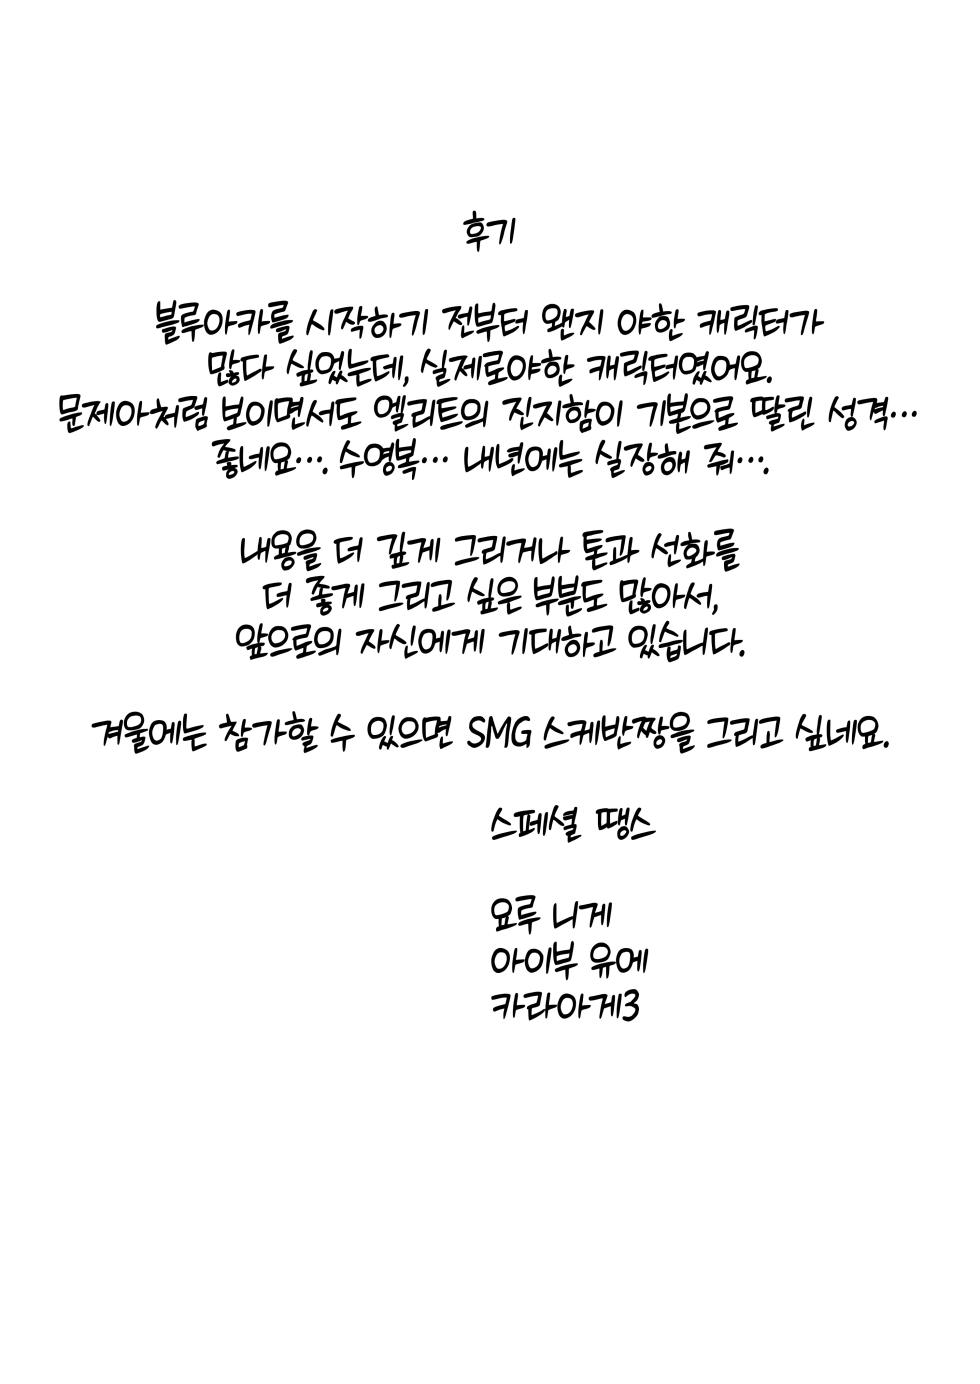 후기
블루아카를 시작하기 전부터 왠지 야한 캐릭터가
많다 싶었는데, 실제로야한 캐릭터였어요.
문제아처럼 보이면서도 엘리트의 진지함이 기본으로 딸린 성격…
좋네요…. 수영복… 내년에는 실장해 줘….
내용을 더 깊게 그리거나 톤과 선화를
더 좋게 그리고 싶은 부분도 많아서,
앞으로의 자신에게 기대하고 있습니다.
겨울에는 참가할 수 있으면 SMG 스케반짱을 그리고 싶네요.
스페셜 땡스
요루 니게
아이부 유에
카라아게3